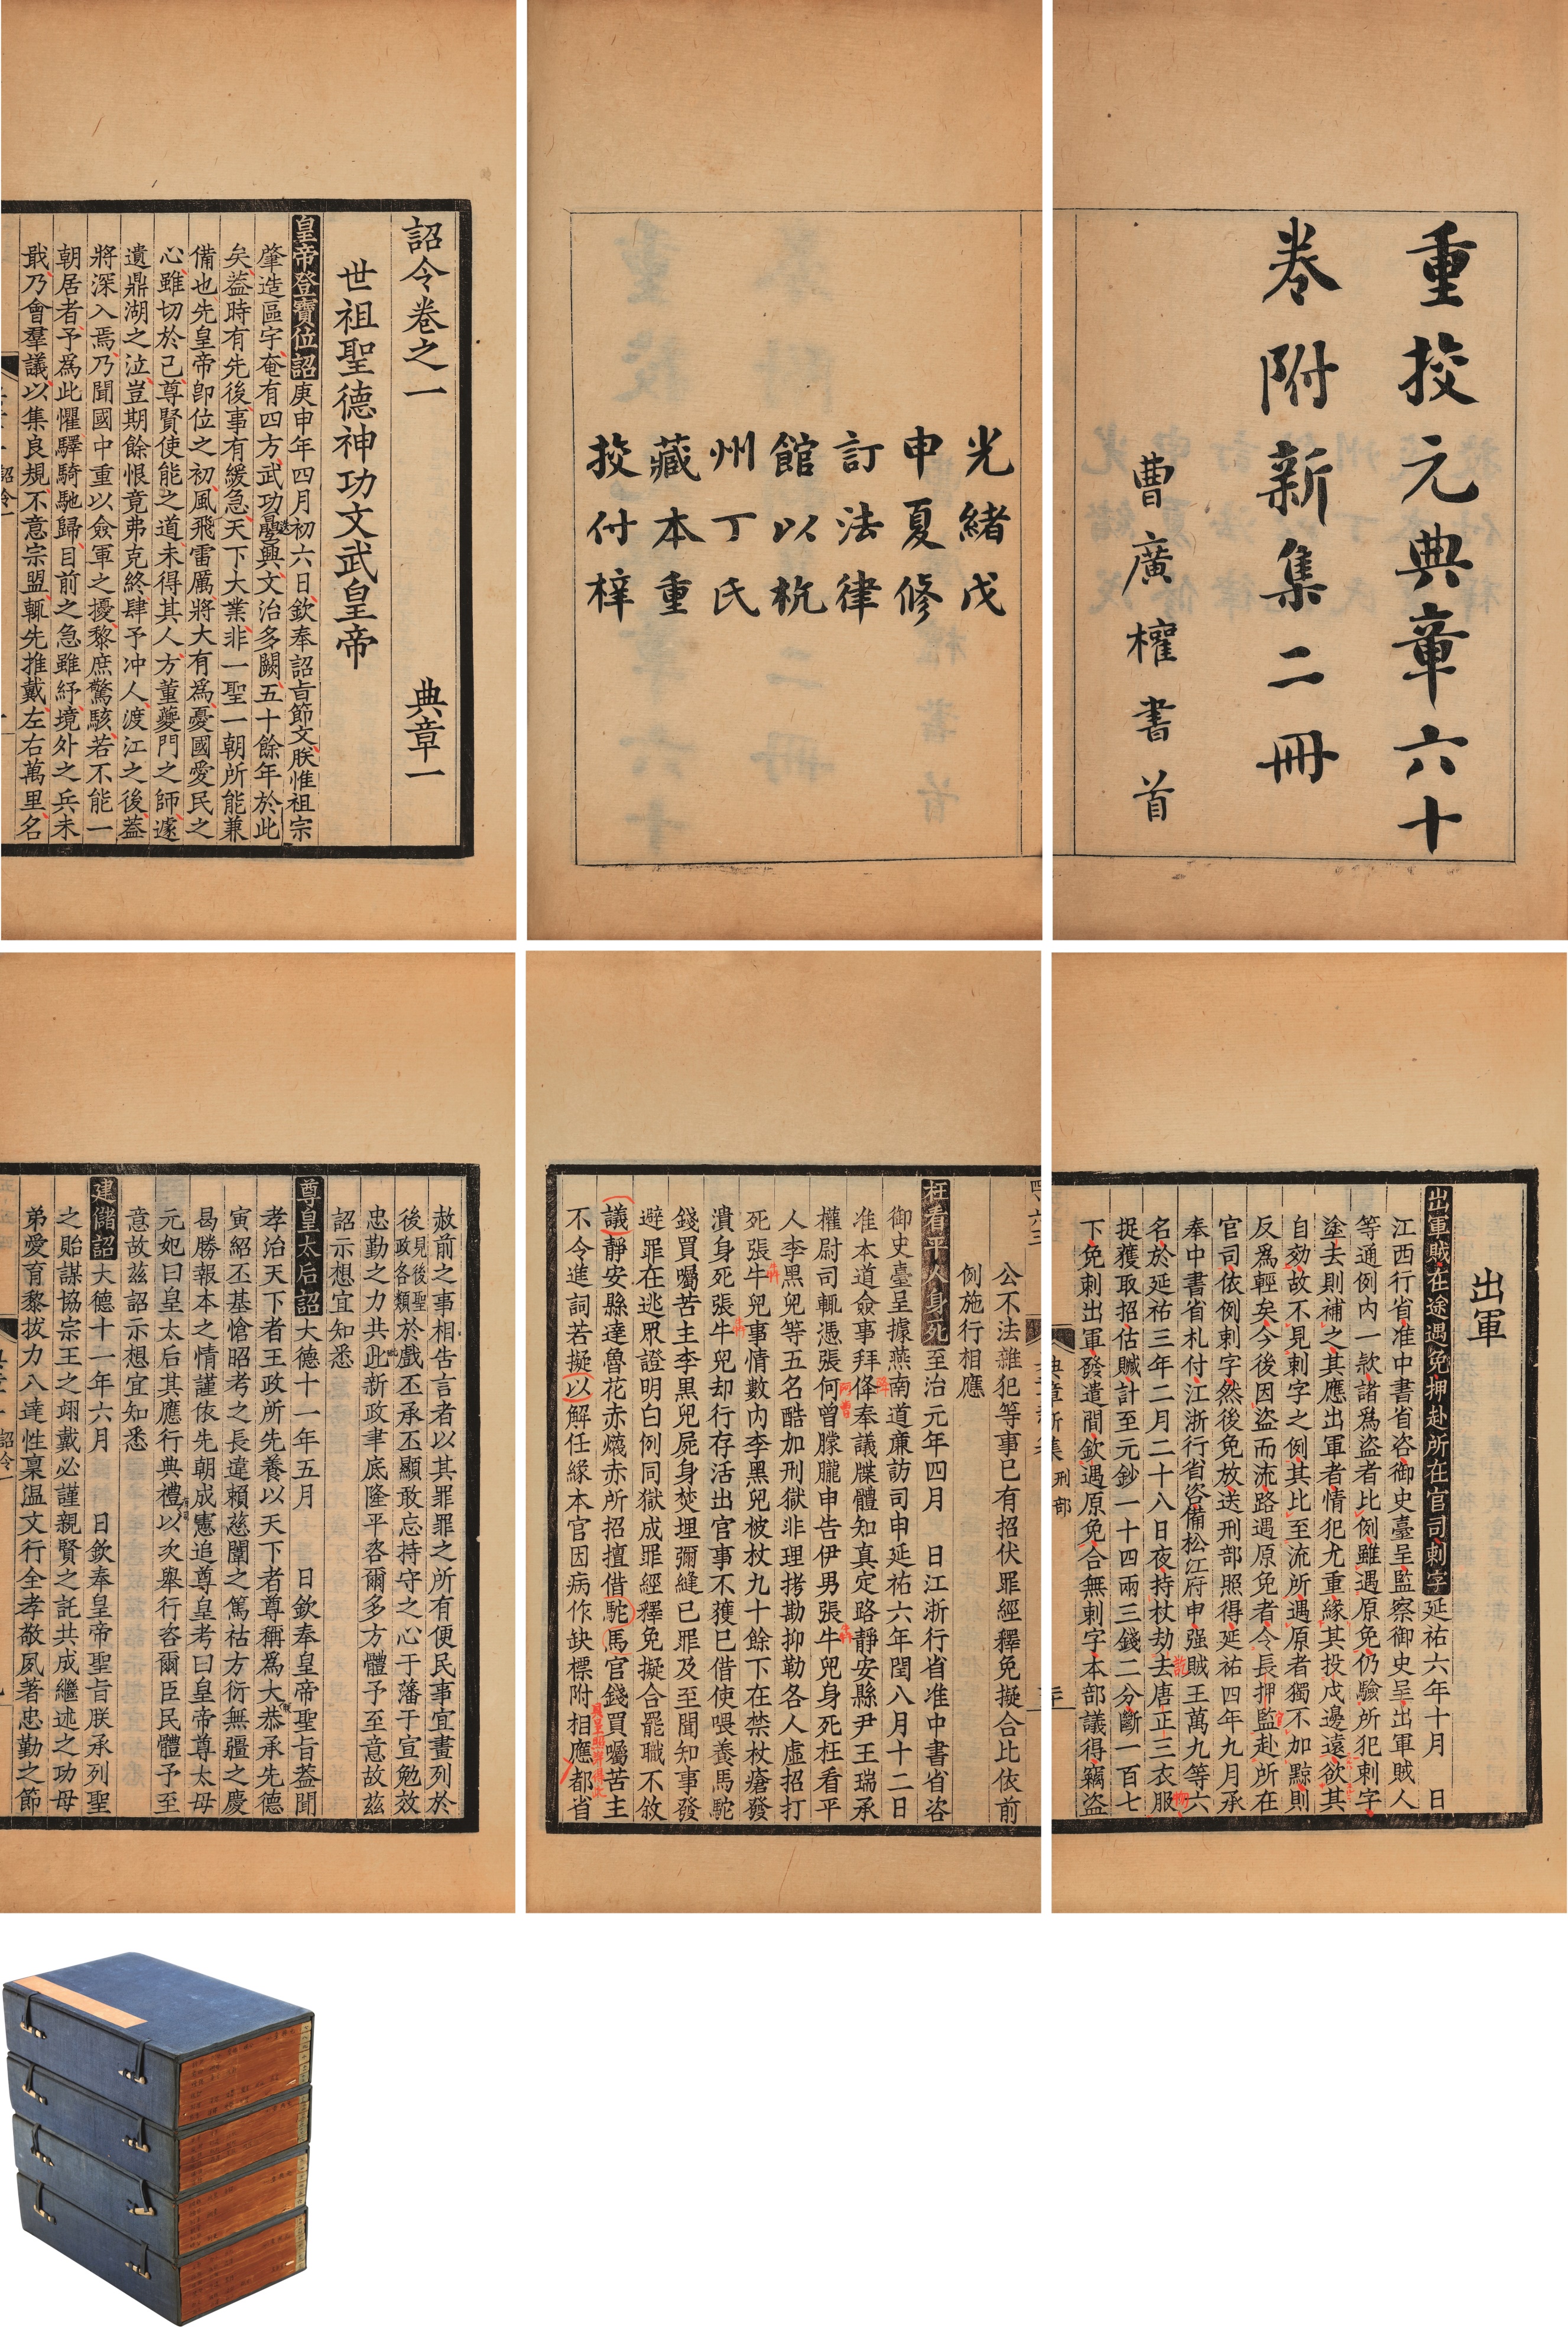 重挍元典章六十
卷附新集二冊
曹廣權書首
光緒戊
申夏修
訂法律
館以杭
州丁氏
藏本重
挍付梓
詔令卷之一 典章一
世祖聖德神功文武皇帝
皇帝登寶位詔庚申年四月初六日欽奉詔旨節文朕惟祖宗
肇造區宇奄有四方武功迭興文治多闕五十餘年於此
矣葢時有先後事有緩急天下大業非一聖一朝所能兼
備也先皇帝卽位之初風飛雷厲將大有爲憂國愛民之
心雖切於己尊賢使能之道未得其人方董夔門之師遽
遺鼎湖之泣豈期餘恨竟弗克終肆予冲人渡江之後葢
將深入焉乃聞國中重以僉軍之擾黎庶驚駭若不能一
朝居者予爲此懼驛騎馳歸目前之急雖紓境外之兵未
戢乃會羣議以集良規不意宗盟輒先推戴左右萬里名
出軍
出軍賊在途遇免押赴所在官司刺字延祐六年十月 日
江西行省准中書省咨御史臺呈監察御史呈出軍賊人
等通例內一欵諸爲盜者比例雖遇原免仍驗所犯刺字
塗去則補之其應出軍者情犯尤重緣其投戍邊遠欲其
自効故不見刺字之例其比至流所遇原者獨不加黥則
反爲輕矣今後因盜而流路遇原免者令長押監赴所在
官司依例刺字然後免放送刑部照得延祐四年九月承
奉中書省札付江浙行省咨備松江府申强賊王萬九等六
名於延祐三年二月二十八日夜持杖劫去唐正三衣服
捉獲取招估贓計至元鈔一十四兩三錢二分斷一百七
下免刺出軍發遣間欽遇原免合無刺字本部議得竊盜
典章新集 刑部
公不法雜犯等事已有招伏罪經釋免擬合比依前
例施行相應
枉看平人身死至治元年四月 日江浙行省准中書省咨
御史臺呈據燕南道亷訪司申延祐六年閏八月十二日
准本道僉事拜降奉議牒體知真定路靜安縣尹王瑞承
權尉司輒憑張何曾朦朧申告伊男張牛兒身死枉看平
人李黑兒等五名酷加刑獄非理拷勘抑勒各人虛招打
死張牛兒事情數內李黑兒被杖九十餘下在禁杖瘡發
潰身死張牛兒却行存活出官事不獲已借使喂養馬駝
錢買囑苦主李黑兒屍身焚埋彌縫已罪及至聞知事發
避罪在逃眾證明白例同獄成罪經釋免擬合罷職不敘
議靜安縣達魯花赤㷼赤所招擅借駝馬官錢買囑苦主
不令進詞若擬以解任緣本官因病作缺標附相應都省
赦前之事相告言者以其罪罪之所有便民事宜畫列於
後見後聖政各類於戲丕承丕顯敢忘持守之心于藩于宣勉效
忠勤之力共此新政聿底隆平咨爾多方體予至意故茲
詔示想宜知悉
尊皇太后詔大德十一年五月 日欽奉皇帝聖旨葢聞
孝治天下者王政所先養以天下者尊稱爲大恭承先德
寅紹丕基愴昭考之長違賴慈闈之篤祜方衍無疆之慶
曷勝報本之情謹依先朝成憲追尊皇考曰皇帝尊太母
元妃曰皇太后其應行典禮以次舉行咨爾臣民體予至
意故茲詔示想宜知悉
建儲詔大德十一年六月 日欽奉皇帝聖旨朕承列聖
之貽謀協宗王之翊戴必謹親賢之託共成繼述之功母
弟愛育黎拔力八達性稟温文行全孝敬夙著忠勤之節